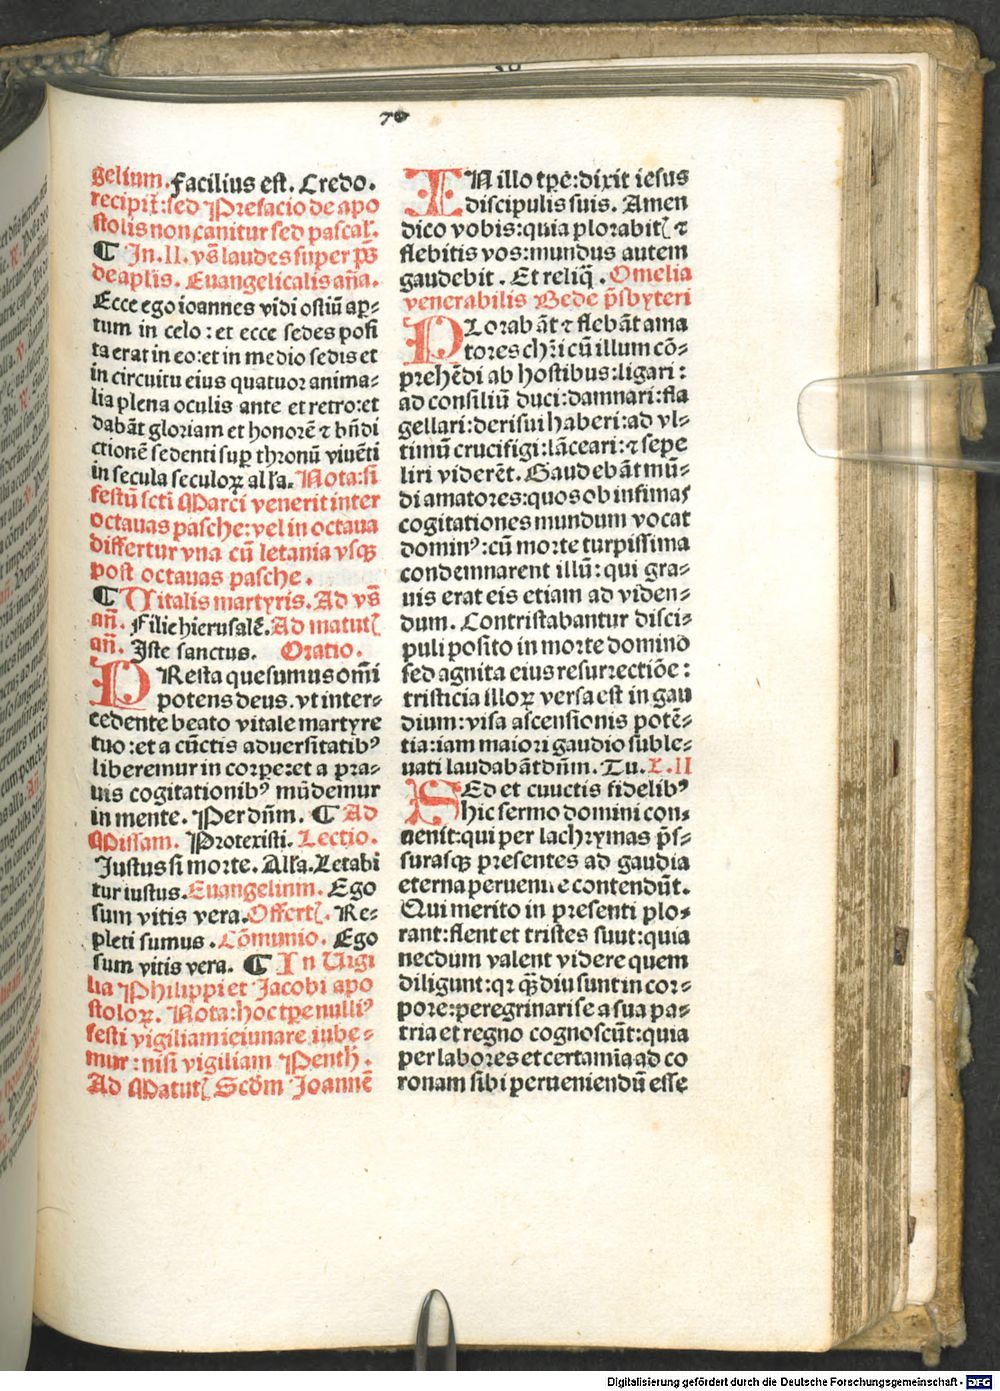 70
gelium. Facilius est. Credo.
recipit̃: sed Prefacio de apo
stolis non canitur sed pascal'.
¶ In. II. vs̃ laudes super p̃s
de aplis̃. Euangelicalis añ̃a.
Ecce ego ioannes vidi ostiũ ap̱-
tum in celo: et ecce sedes posi
ta erat in eo: et in medio sedis et
in circuitu eius quatuor anima-
lia plena oculis ante et retro: et
dabãt gloriam et honorẽ ⁊ bñdi
ctionẽ sedenti sup̱ thronũ viuẽti
in secula seculoꝝ alľa. Nota: si
festũ scti̇̃ Marci venerit inter
octauas pasche: vel in octaua
differtur vna cũ letania vsqꝫ
post octauas pasche.
¶ Vitalis martyris. Ad vs̃
añ. Filie hierusalẽ. Ad matutꝭ
añ. Iste sanctus. Oratio.
PResta quesumus omi̇̃
potens deus. vt inter-
cedente beato vitale martyre
tuo: et a cũctis aduersitatibꝰ
liberemur in corpe: et a pra-
uis cogitationibꝰ mũdemur
in mente. Per dñm. ¶ Ad
Missam. Protexisti. Lectio.
Iustus si morte. Alľa. Letabi
tur iustus. Euangelium. Ego
sum vitis vera. Offertꝭ. Re-
pleti sumus. Cõmunio. Ego
sum vitis vera. ¶ In Uigi
lia Philippi et Jacobi apo
stoloꝝ. Nota: hoc tp̃e nulliꝰ
festi vigiliam ieiunare iube-
mur: nisi vigiliam Penth̃.
Ad Matutꝭ Scdm̃ Joannẽ
IN illo tp̃e: dixit iesus
discipulis suis. Amen
dico vobis: quia plorabitꝭ ⁊
flebitis vos: mundus autem
gaudebit. Et reliq̃. Omelia
venerabilis Bede p̃sbyteri
PLorabãt ⁊ flebãt ama
tores chr̃i cũ illum cõ-
prehẽdi ab hostibus: ligari:
ad consiliũ duci: damnari: fla
gellari: derisui haberi: ad vl-
timũ crucifigi: lãceari: ⁊ sepe
liri viderẽt. Gaudebãt mũ-
di amatores: quos ob infimas
cogitationes mundum vocat
dominꝰ: cũ morte turpissima
condemnarent illũ: qui gra-
uis erat eis etiam ad viden-
dum. Contristabantur disci-
puli posito in morte domino
sed agnita eius resurrectiõe:
tristicia illoꝝ versa est in gau
dium: visa ascensionis potẽ-
tia: iam maiori gaudio suble-
uati laudabãt dñm. Tu. L. II
SEd et cuuctis fidelibꝰ
hic sermo domini con-
uenit: qui per lachrymas p̃s-
surasqꝫ presentes ad gaudia
eterna peruenire contendũt.
Qui merito in presenti plo-
rant: flent et tristes suut: quia
necdum valent videre quem
diligunt: qr q̃diu sunt in cor-
pore: peregrinari se a sua pa-
tria et regno cognoscũt: quia
per labores et certamia ad co
ronam sibi perueniendũ esse
Digitalisierung gefördert durch die Deutsche Forschungsgemeinschaft - DFG